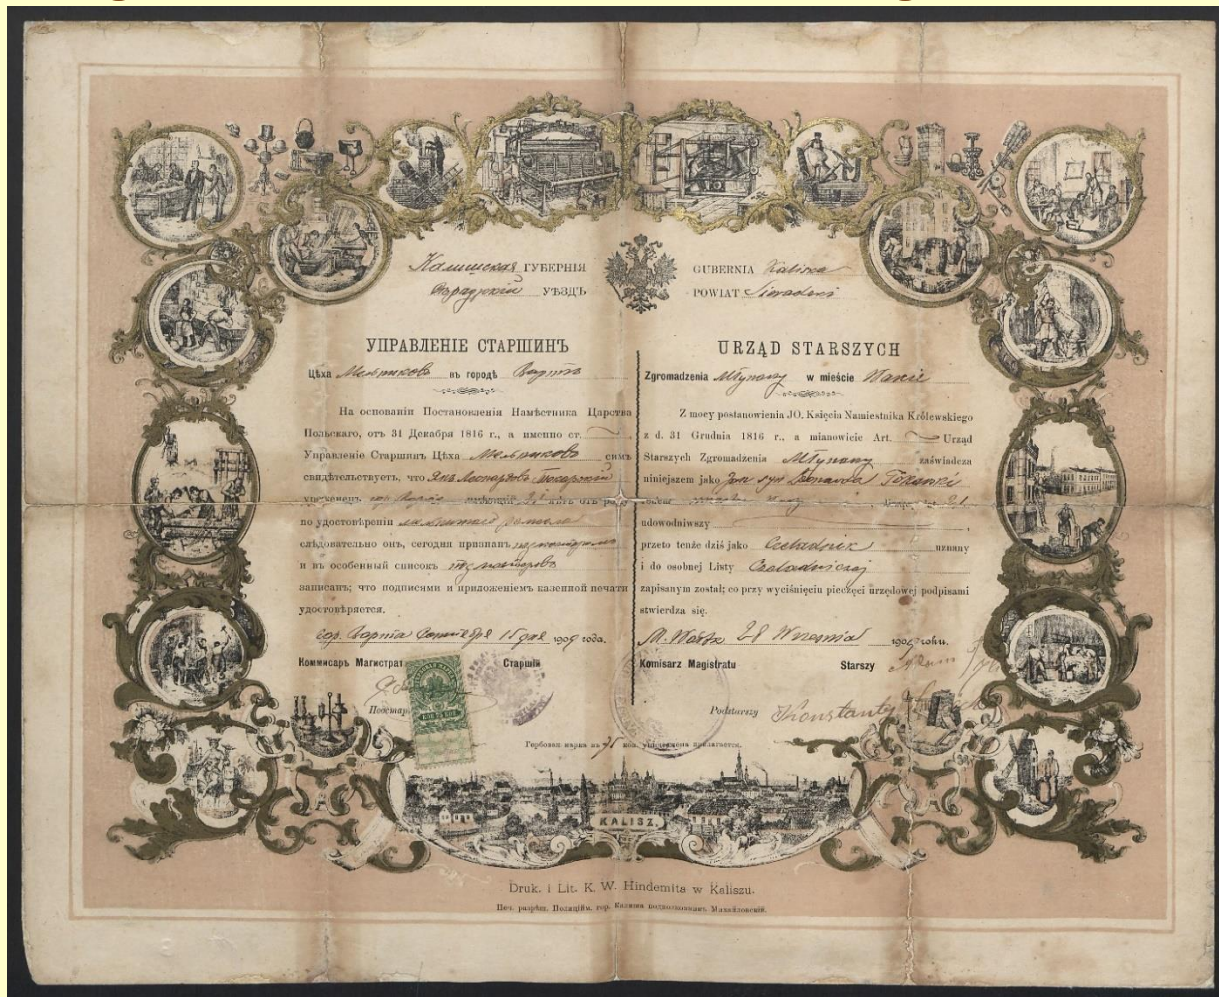 Калишская ГУБЕРНІЯ
УѢЗДЪ
УПРАВЛЕНІЕ СТАРШИНЪ
Цѣха Мельниковъ въ городѣ Вартѣ
На основаніи Постановленія Намѣстника Царства
Польскаго, отъ 31 Декабря 1816 г., а именно ст.
Управленіе Старшинъ Цѣха Мельниковъ симъ
свидѣтельствуетъ, что Янъ
лѣтъ отъ роду
по удостовѣреніи
слѣдовательно онъ, сегодня признанъ
и въ особенный списокъ
записанъ; что подписями и приложеніемъ казенной печати
удостовѣряется.
гор. Варта 15 дня 1909 года.
Коммисаръ Магистрат Старшій
GUBERNIA Kaliska
POWIAT Sieradzki
URZĄD STARSZYCH
Zgromadzenia Młynarzy w mieście Warcie
Z mocy postanowienia JO. Księcia Namiestnika Królewskiego
z d. 31 Grudnia 1816 r., a mianowicie Art. Urząd
Starszych Zgromadzenia Młynarzy zaświadcza
niniejszem jako Jan syn Leonarda Tokarski
21
udowodniwszy
przeto tenże dziś jako Czeladnik uznany
i do osobnej Listy Czeladniczej
zapisanym został; co przy wyciśnięciu pieczęci urzędowej podpisami
stwierdza się.
M. Warta 28 Września 1909 roku.
Komisarz Magistratu Starszy
Podstarszy Konstanty
Гербовая марка на 75 коп. уничтожена прилагается.
KALISZ.
Druk. i Lit. K. W. Hindemita w Kaliszu.
Печ. разрѣш. Полиційм. гор. Калиша подполковникъ Михайловскій.